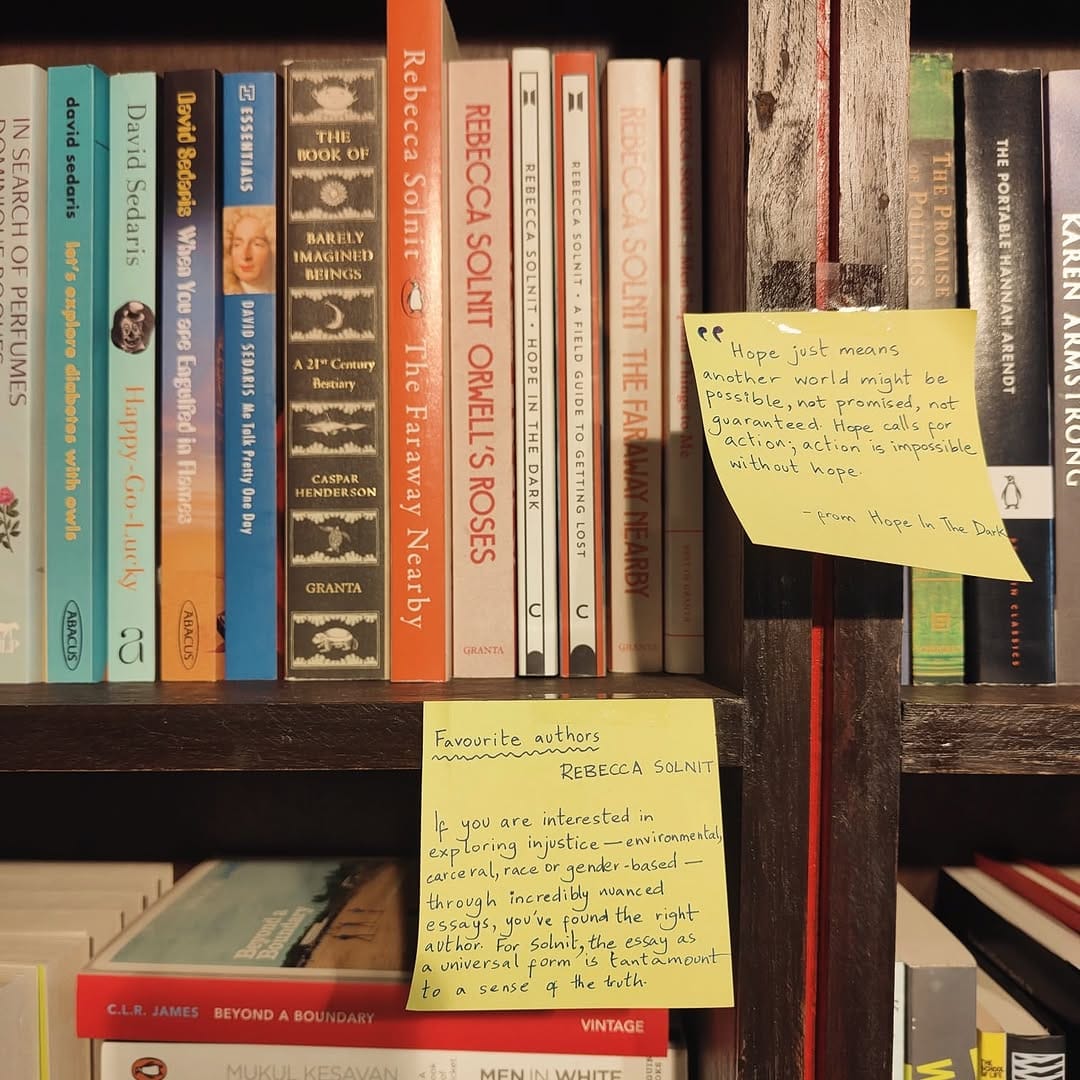 IN SEARCH OF PERFUMES
david sedaris let's explore diabetes with owls
ABACUS
David Sedaris
Happy-Go-Lucky
a
David Sedaris When You are Engulfed in Flames
ABACUS
ESSENTIALS
DAVID SEDARIS Me Talk Pretty One Day
THE
BOOK OF
BARELY
IMAGINED
BEINGS
A 21st Century
Bestiary
CASPAR
HENDERSON
GRANTA
Rebecca Solnit The Faraway Nearby
REBECCA SOLNIT ORWELL'S ROSES
GRANTA
REBECCA SOLNIT • HOPE IN THE DARK
REBECCA SOLNIT • A FIELD GUIDE TO GETTING LOST
REBECCA SOLNIT THE FARAWAY NEARBY
GRANTA
THE PROMISE
OF POLITICS
THE PORTABLE HANNAH ARENDT
KAREN ARMSTRONG
“ Hope just means
another world might be
possible, not promised, not
guaranteed. Hope calls for
action; action is impossible
without hope.
- from Hope In The Dark
Favourite authors
REBECCA SOLNIT
If you are interested in
exploring injustice — environmental,
carceral, race or gender-based —
through incredibly nuanced
essays, you've found the right
author. For Solnit, the essay as
a universal form is tantamount
to a sense of the truth.
Beyond a
Boundary
C.L.R. JAMES BEYOND A BOUNDARY
VINTAGE
MUKUL KESAVAN
MEN IN WHITE
THE
SCHOOL
OF LIFE